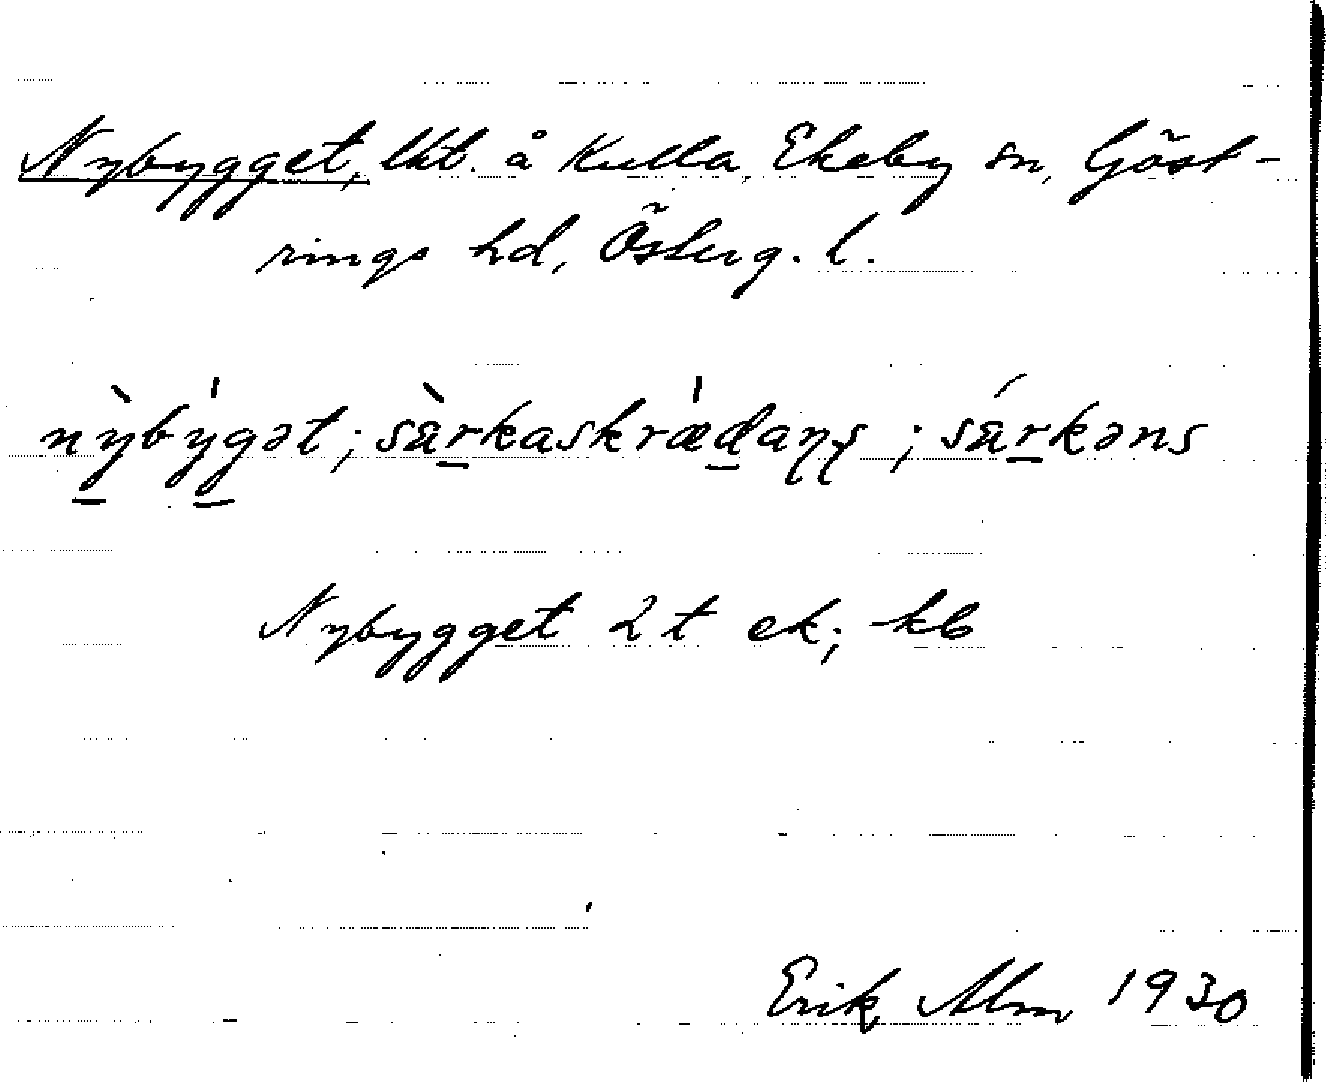 Nybygget, lht. å Kulla, Ekeby sn, Göst-
rings hd, Österg. l.
nỳbýgət; sàrkaskrǽdaŋs ; sárkəns
Nybygget 2 t ek; kb
Erik Alm 1930